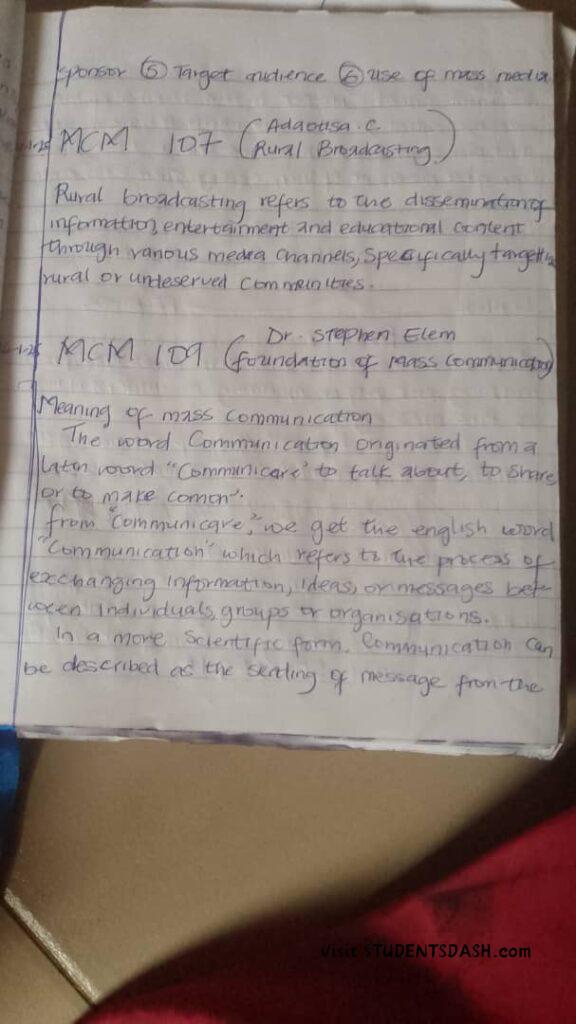 sponsor ⑤ Target audience ⑥ use of mass media
MCM 107 (Rural Broadcasting)
Rural broadcasting refers to the dissemination of
information, entertainment and educational content
through various media channels, specifically targetting
rural or undeserved communities.
Dr. Stephen Elem
MCM 109 (foundation of Mass Communication)
Meaning of mass communication
The word Communication originated from a
latin word "Communicare" to talk about, to share
or to make comon".
from "communicare," we get the english word
"Communication" which refers to the process of
exchanging information, ideas, or messages bet-
ween individuals, groups or organisations.
In a more scientific form, Communication can
be described as the sending of message from the
Visit STUDENTSDASH.com